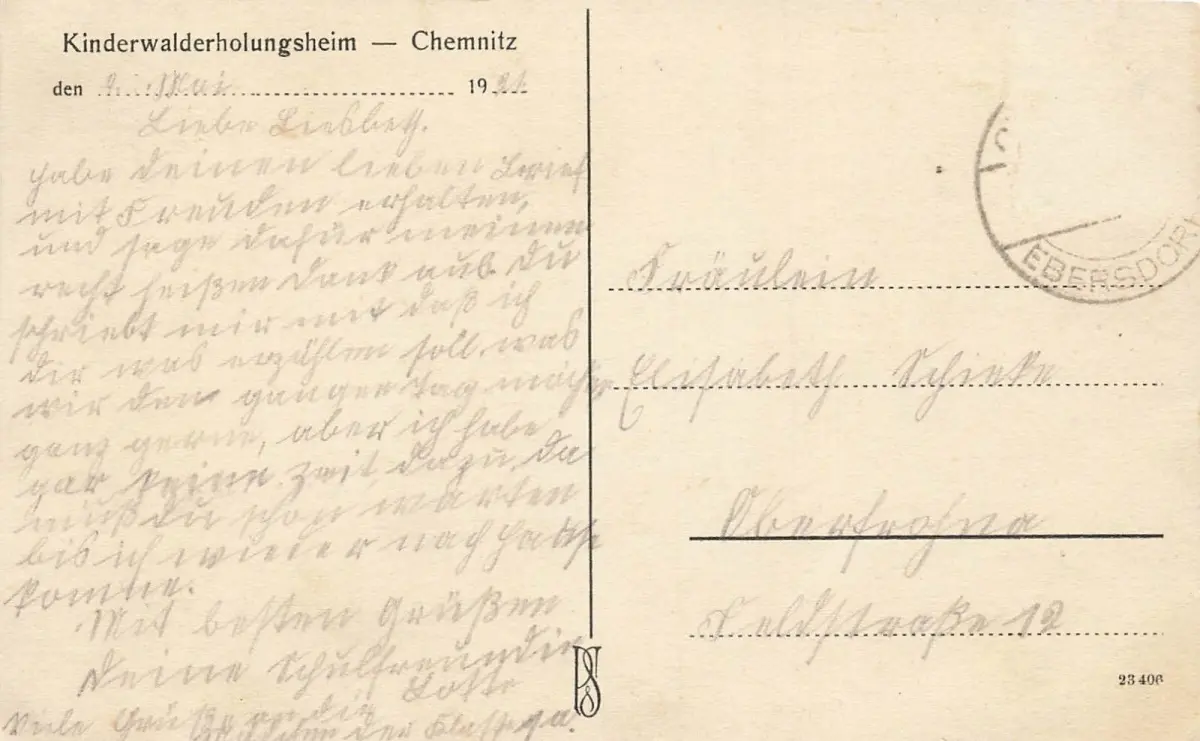 Kinderwalderholungsheim — Chemnitz
den 2. Mai 1921.
Liebe Liesbeth.
habe deinen lieben Brief
mit Freuden erhalten,
und sage dafür meinen
recht heißen Dank aus. Du
schriebt mir mit daß ich
dir was erzählen soll was
wir den ganzen Tag machen
ganz gerne, aber ich habe
gar keine Zeit dazu, da
mußt du schon warten
bis ich wieder nach Hause
komme.
Mit besten Grüßen
deine Schulfreundin
Lotte
Viele Grüße an die
Mädchen der Klasse
EBERSDORF
Fräulein
Elisabeth Schieke
Oberfrohna
Feldstraße 12
23406